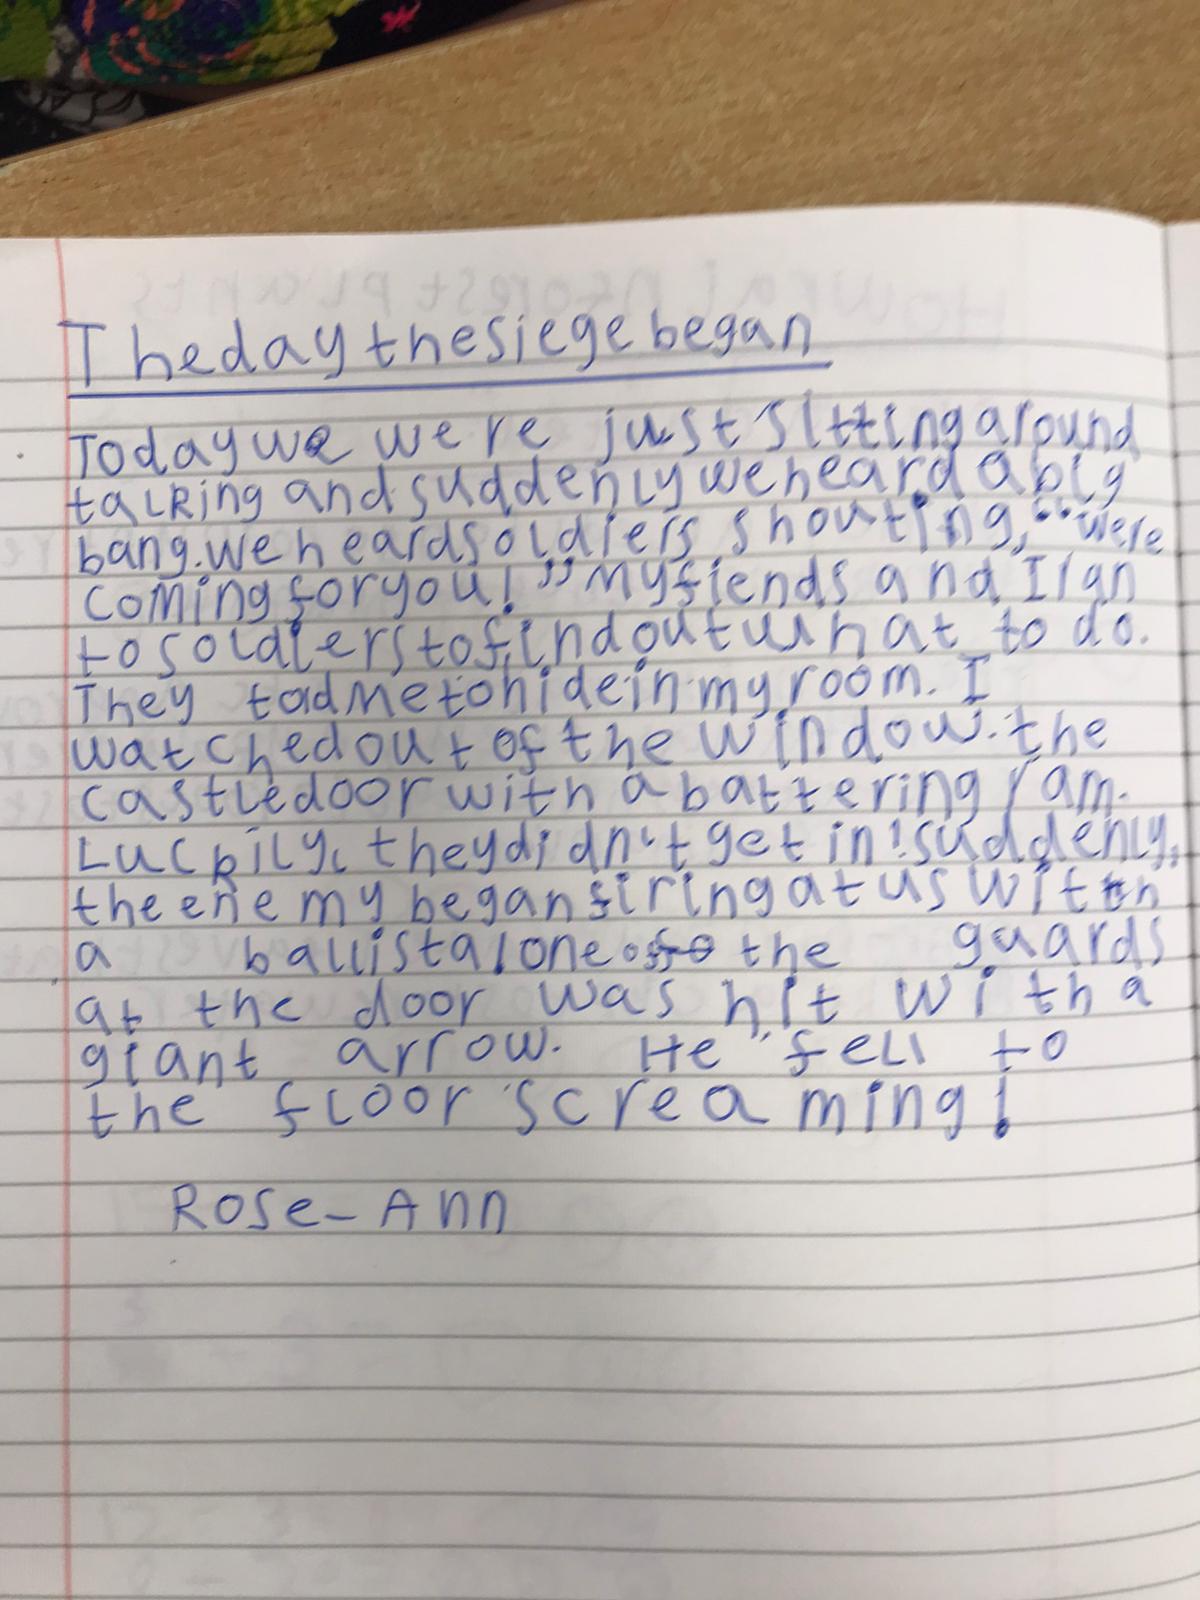 The day the siege began
Today we were just sitting around
talking and suddenly we heard a big
bang. we heard soldiers shouting, "were
coming for you!" My fiends and I ran
to soldiers to find out what to do.
They tad me to hide in my room. I
watched out of the window. the
castle door with a battering ram.
Luckily, they didn't get in! suddenly,
the enemy began firing at us with
a ballista one of the guards
at the door was hit with a
giant arrow. He fell to
the floor screaming!
Rose-Ann